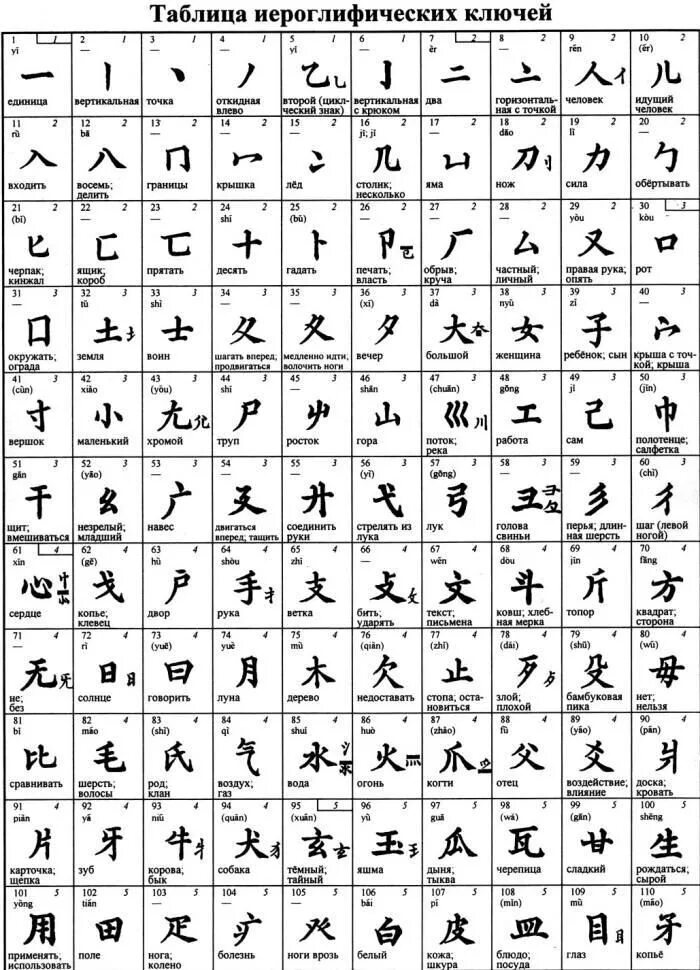 Таблица иероглифических ключей
1 1 2 1 3 1 4 1 5 1 6 1 7 2 8 2 9 2 10 2
yī — — — yǐ — èr — rén (ér)
一 丨 丶 丿 乙 乚 亅 二 亠 人 亻 儿
единица вертикальная точка откидная второй (цикл- вертикальная два горизонталь- человек идущий
влево ческий знак) с крюком ная с точкой человек
11 2 12 2 13 2 14 2 15 2 16 2 17 2 18 2 19 2 20 2
rù bā — — — jī; jǐ — dāo lì —
入 八 冂 冖 冫 几 凵 刀 刂 力 勹
входить восемь; границы крышка лёд столик; яма нож сила обёртывать
делить несколько
21 2 22 2 23 2 24 2 25 2 26 2 27 2 28 2 29 2 30 3
(bǐ) — — shí (bǔ) — — — yòu kǒu
匕 匚 匸 十 卜 卩 㔾 厂 厶 又 口
черпак; ящик; прятать десять гадать печать; обрыв; частный; правая рука; рот
кинжал короб власть круча личный опять
31 3 32 3 33 3 34 3 35 3 36 3 37 3 38 3 39 3 40 3
— tǔ shì — — (xī) dà nyǔ zǐ —
囗 土 士 夂 夊 夕 大 女 子 宀
окружать; земля воин шагать вперед; медленно идти; вечер большой женщина ребёнок; сын крыша с точ-
ограда продвигаться волочить ноги кой; крыша
41 3 42 3 43 3 44 3 45 3 46 3 47 3 48 3 49 3 50 3
(cùn) xiǎo (yóu) shī — shān (chuān) gōng jǐ (jīn)
寸 小 尢 尸 屮 山 巛 川 工 己 巾
вершок маленький хромой труп росток гора поток; работа сам полотенце;
река салфетка
51 3 52 3 53 3 54 3 55 3 56 3 57 3 58 3 59 3 60 3
gān (yāo) — — — (yì) (gōng) — — (chì)
干 幺 广 廴 廾 弋 弓 彐 彡 彳
щит; незрелый; навес двигаться соединить стрелять из лук голова перья; длин- шаг (левой
вмешиваться младший вперед; тащить руки лука свиньи ная шерсть ногой)
61 4 62 4 63 4 64 4 65 4 66 4 67 4 68 4 69 4 70 4
xīn (gē) hù shǒu zhī — wén dǒu jīn fāng
心 忄 戈 戶 手 扌 支 攴 攵 文 斗 斤 方
сердце копье; двор рука ветка бить; текст; ковш; хлеб- топор квадрат;
клевец ударять письмена ная мерка сторона
71 4 72 4 73 4 74 4 75 4 76 4 77 4 78 4 79 4 80 4
— rì (yuē) yuè mù (qiàn) (zhǐ) (dǎi) (shū) (wú)
无 旡 日 曰 月 木 欠 止 歹 歺 殳 毋
не; солнце говорить луна дерево недоставать стопа; оста- злой; бамбуковая нет;
без новиться плохой пика нельзя
81 4 82 4 83 4 84 4 85 4 86 4 87 4 88 4 89 4 90 4
bǐ máo (shì) qì shuǐ huǒ (zhǎo) fù (yáo) (pán)
比 毛 氏 气 水 氵 氺 火 灬 爪 爫 父 爻 爿
сравнивать шерсть; род; воздух; вода огонь когти отец воздействие; доска;
волосы клан газ влияние кровать
91 4 92 4 93 4 94 4 95 5 96 5 97 5 98 5 99 5 100 5
piàn yá niú (quǎn) (xuán) yù guā (wǎ) (gān) shēng
片 牙 牛 牜 犬 犭 玄 玉 王 瓜 瓦 甘 生
карточка; зуб корова; собака тёмный; яшма дыня; черепица сладкий рождаться;
щепка бык тайный тыква сырой
101 5 102 5 103 5 104 5 105 5 106 5 107 5 108 5 109 5 110 5
yòng tián — — — bái pí (mǐn) mù (máo)
用 田 疋 疒 癶 白 皮 皿 目 矛
применять; поле нога; болезнь ноги врозь белый кожа; блюдо; глаз копьё
использовать колено шкура посуда